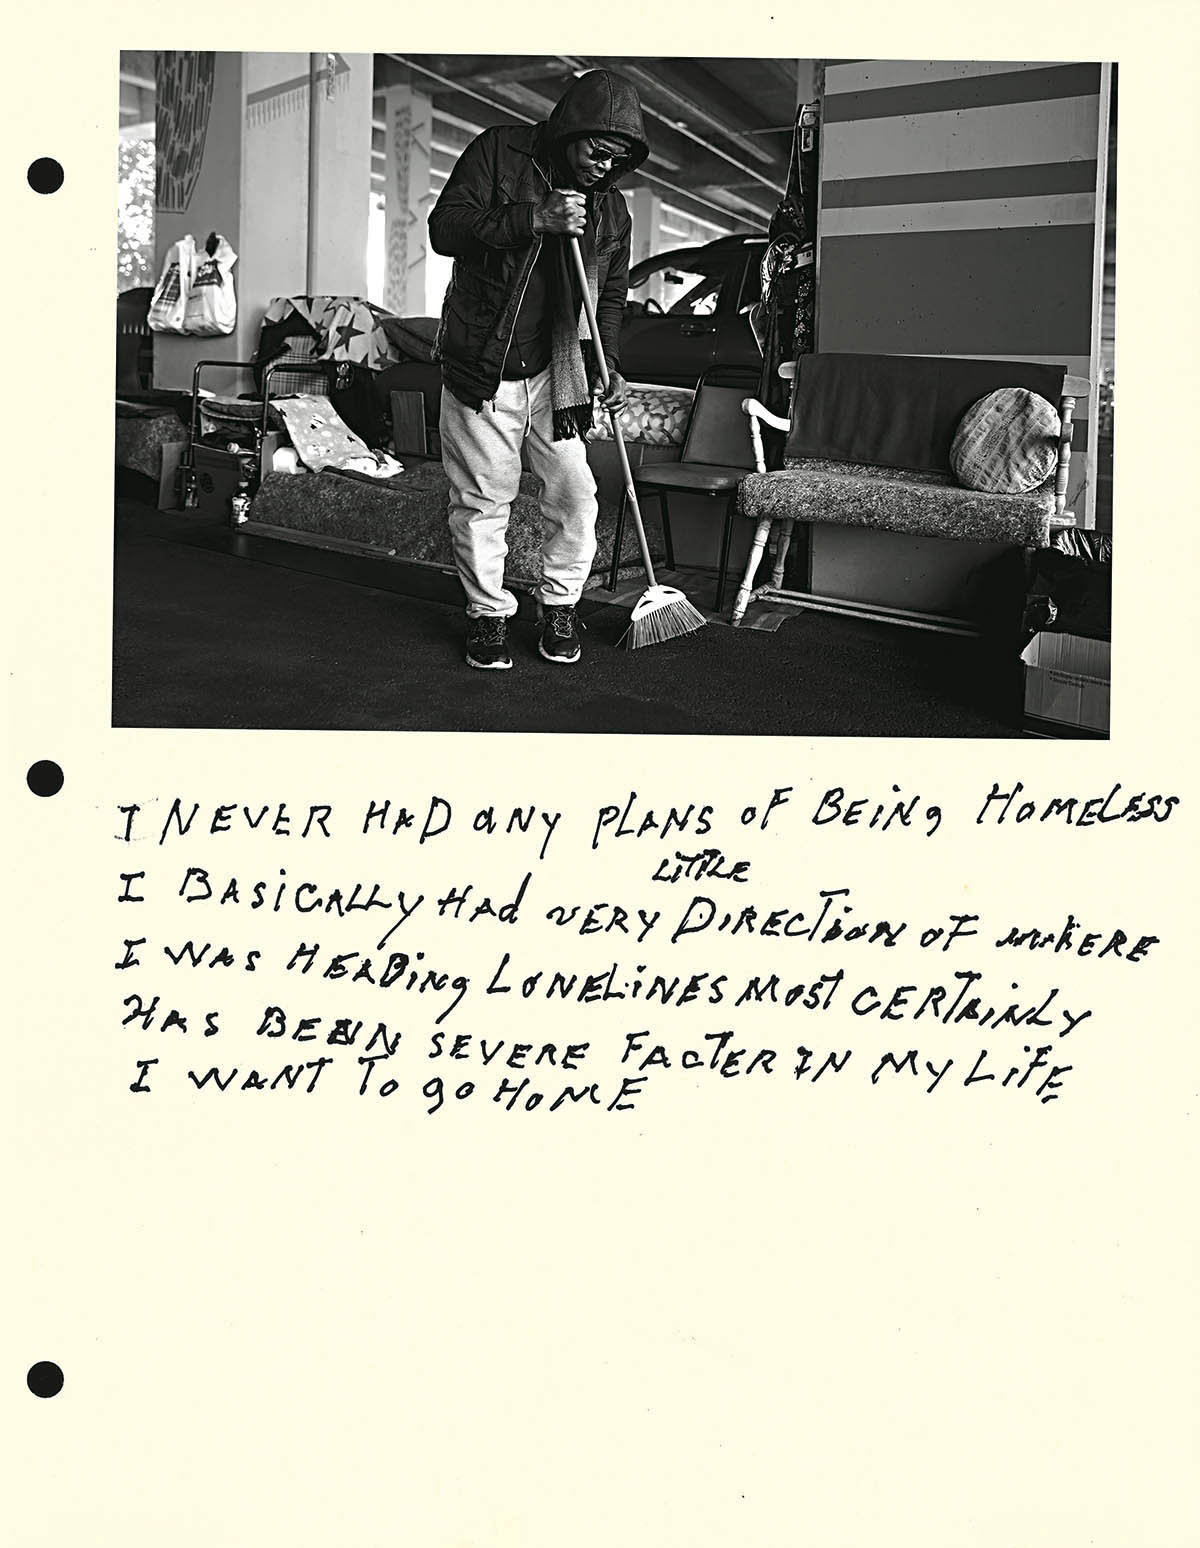 I NEVER HAD ANY PLANS OF BEING HOMELESS
I BASICALLY HAD VERY LITTLE DIRECTION OF WHERE
I WAS HEADING LONELINES MOST CERTAINLY
HAS BEEN SEVERE FACTER IN MY LIFE
I WANT TO GO HOME